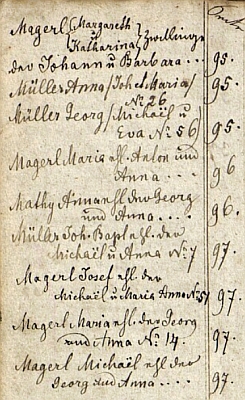 Magerl { Margareth
u Katharina } Zwillinge
der Johann u Barbara ... 95.
Müller Anna / Joh et Maria / 95.
No 26
Müller Georg / Michaël u
Eva No 56 / 95.
Magerl Maria ehl. Anton und
Anna .... 96
Mathy Anna ehl der Georg
und Anna .... 96.
Müller Joh. Bapt ehl. der
Michaël u Anna No 7 97.
Magerl Josef ehl. der
Michaël u Maria Anna No 51 97.
Magerl Maria ehl. der Georg
und Anna No 14. 97.
Magerl Michaël ehl der
Georg und Anna .... 97.